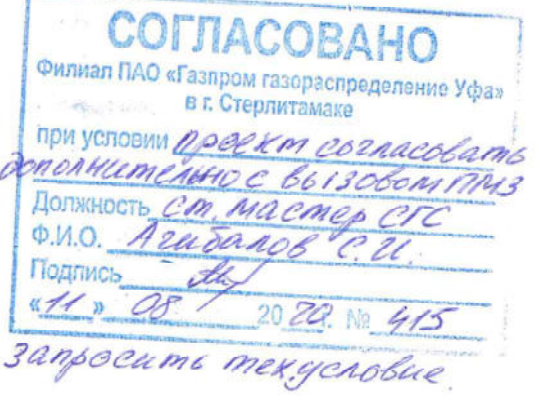 СОГЛАСОВАНО
Филиал ПАО «Газпром газораспределение Уфа»
в г. Стерлитамаке
при условии проект согласовать
дополнительно с вызовом ПМЗ
Должность ст. мастер СГС
Ф.И.О. Агибалов С.И.
Подпись
«11» 08 2020. № 415
запросить тех.условие.